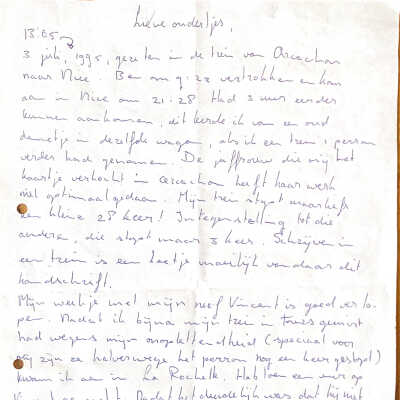 Lieve oudertjes,
13:05
3 juli, 1995, gezeten in de trein van Arcachon
naar Nice. Ben om 9:22 vertrokken en kom
aan in Nice om 21:28 Had 3 uur eerder
kunnen aankomen, dit hoorde ik van een oud
dametje in dezelfde wagon, als ik een trein 1 perron
verder had genomen. De juffrouw die mij het
kaartje verkocht in Arcachon heeft haar werk
niet optimaal gedaan. Mijn trein stopt maarliefst
een kleine 28 keer! In tegenstelling tot die
andere, die stopt maar 3 keer. Schrijven in
een trein is een beetje moeilijk vandaar dit
handschrift.
Mijn weekje met mijn neef Vincent is goed verlo-
pen. Nadat ik bijna mijn trein in Tours gemist
had wegens mijn onoplettendheid (speciaal voor
mij zijn ze halverwege het perron nog een keer gestopt)
kwam ik aan in La Rochelle. Heb toen een uur ge